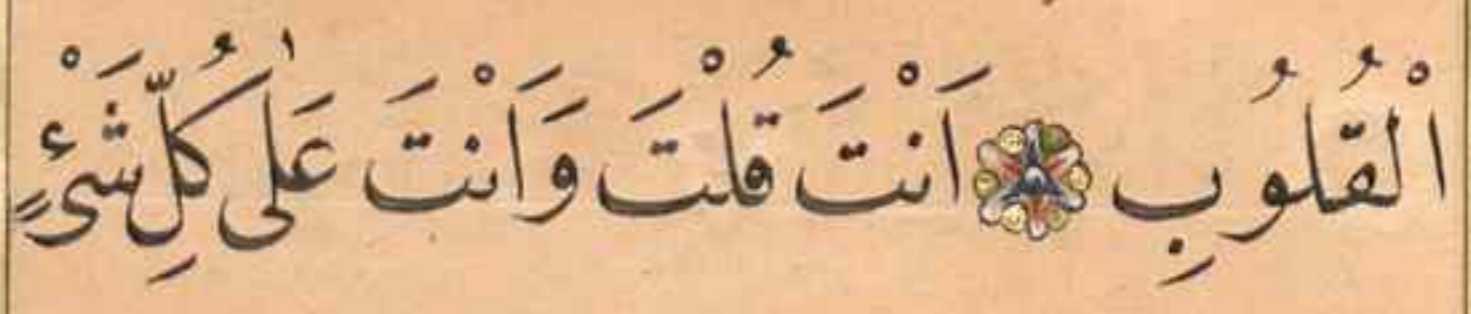 الْقُلُوبِ اَنْتَ قُلْتَ وَاَنْتَ عَلٰى كُلِّ شَىْءٍ